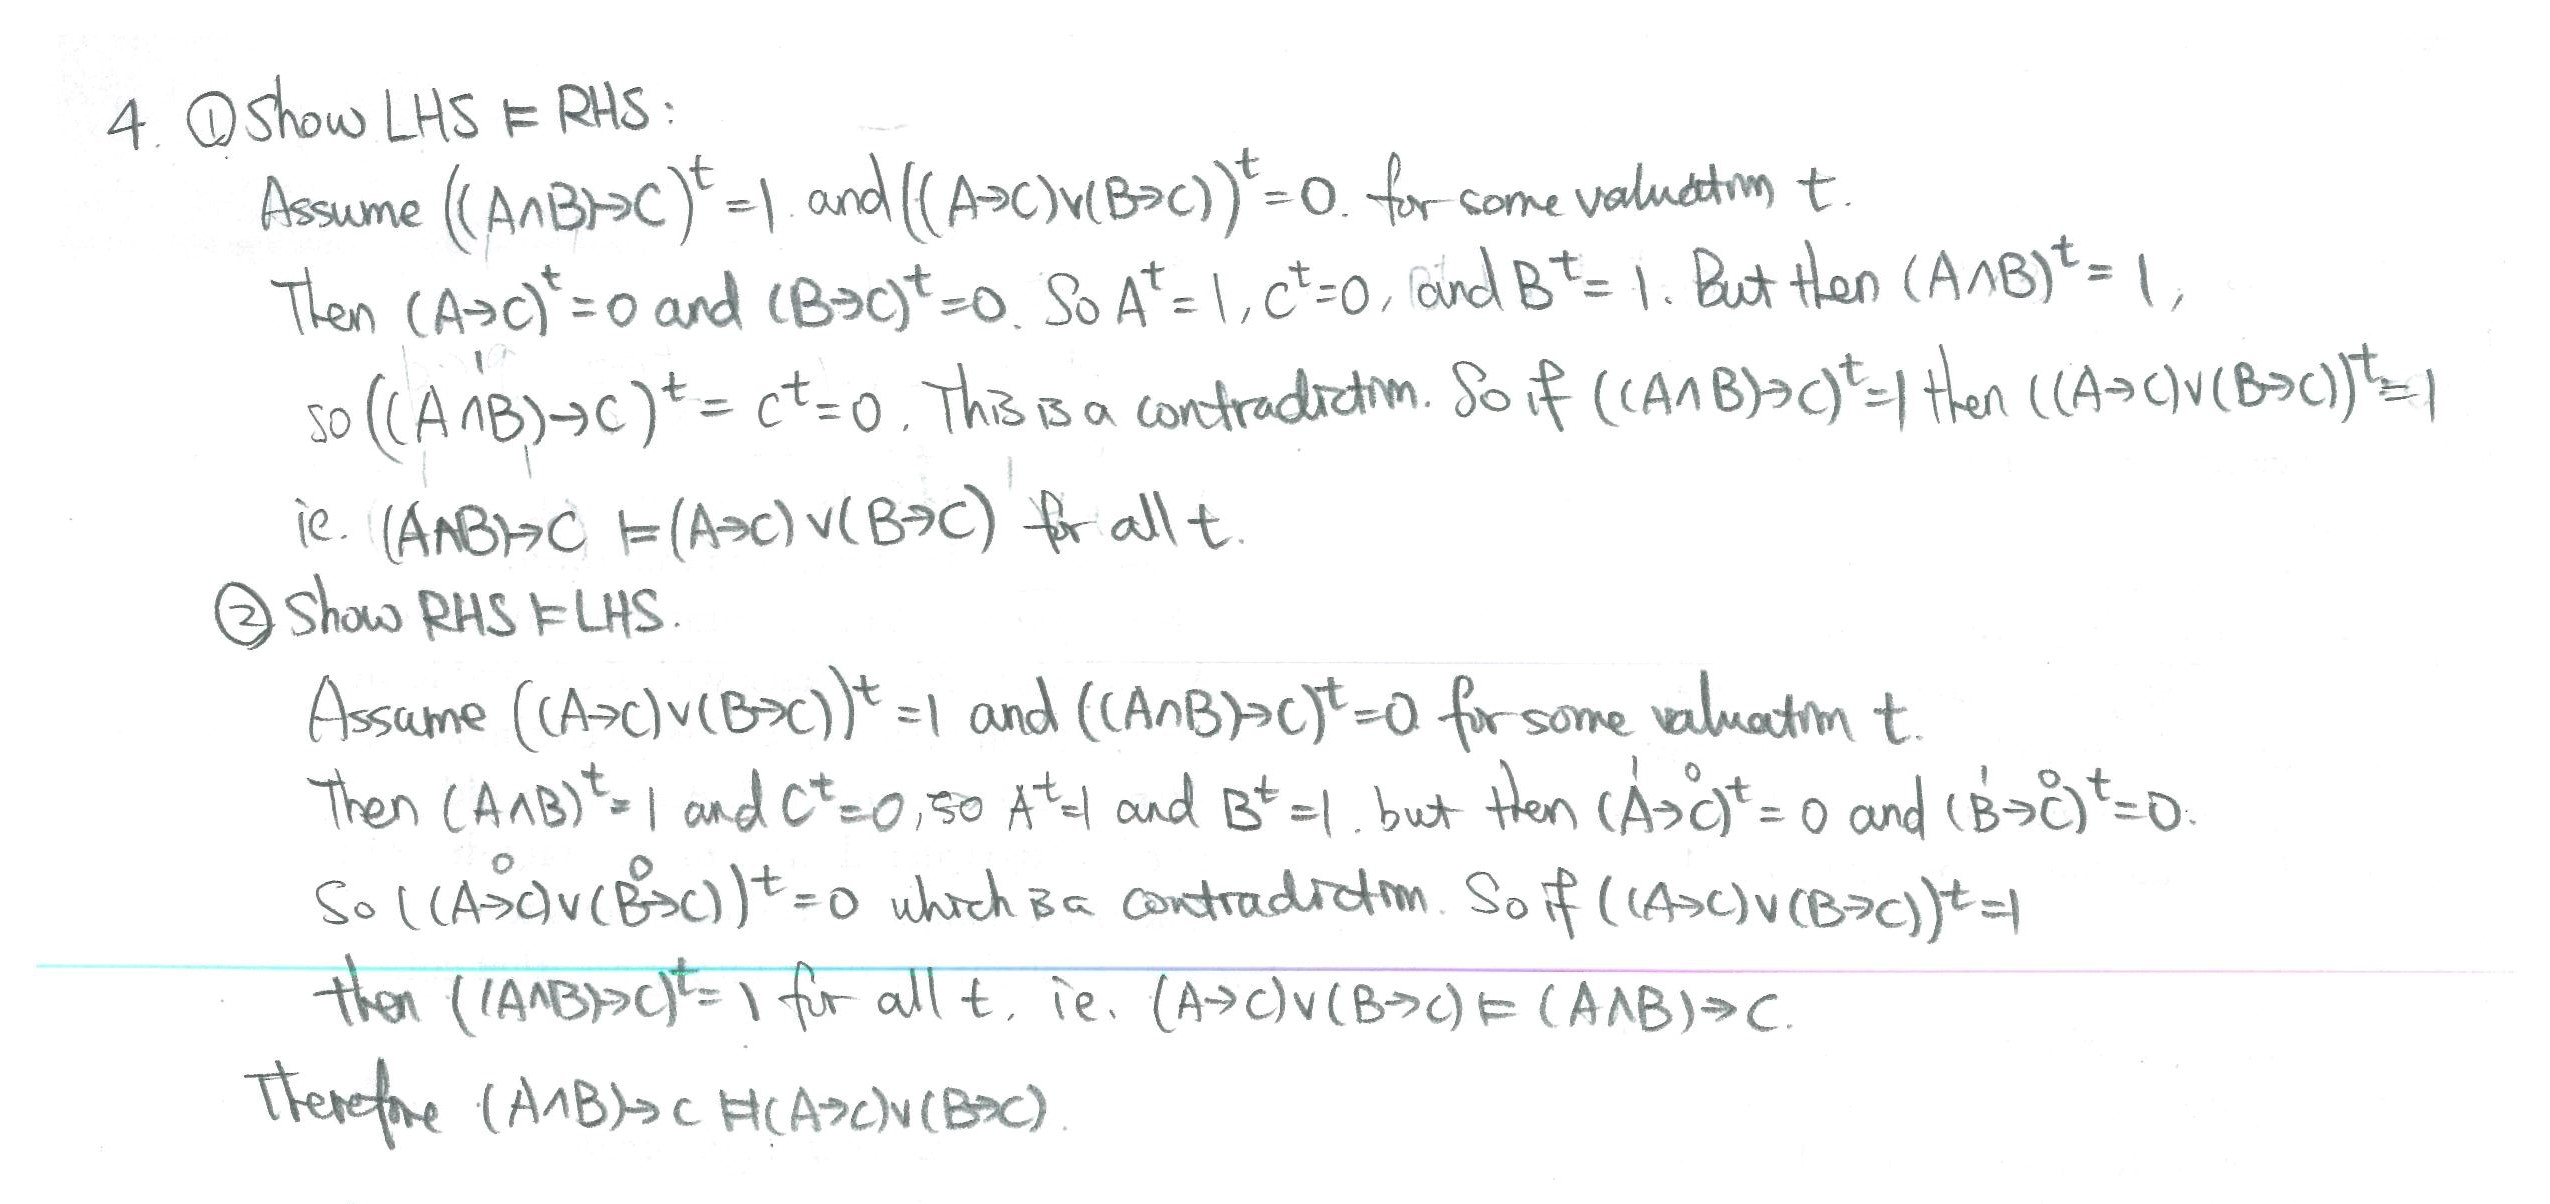 4. ① Show LHS ⊨ RHS:
Assume ((A∧B)→C)ᵗ=1. and ((A→C)∨(B→C))ᵗ=0. for some valuation t.
Then (A→C)ᵗ=0 and (B→C)ᵗ=0. So Aᵗ=1, Cᵗ=0, and Bᵗ=1. But then (A∧B)ᵗ=1,
1
so ((A∧B)→C)ᵗ = Cᵗ=0. This is a contradiction. So if ((A∧B)→C)ᵗ=1 then ((A→C)∨(B→C))ᵗ=1
ie. (A∧B)→C ⊨ (A→C)∨(B→C) for all t.
② Show RHS ⊨ LHS.
Assume ((A→C)∨(B→C))ᵗ=1 and ((A∧B)→C)ᵗ=0 for some valuation t.
1 0 1 0
Then (A∧B)ᵗ=1 and Cᵗ=0, so Aᵗ=1 and Bᵗ=1. but then (A→C)ᵗ=0 and (B→C)ᵗ=0.
0 0
So ((A→C)∨(B→C))ᵗ=0 which is a contradiction. So if ((A→C)∨(B→C))ᵗ=1
then ((A∧B)→C)ᵗ=1 for all t. ie. (A→C)∨(B→C) ⊨ (A∧B)→C.
Therefore (A∧B)→C ⊨⊣ (A→C)∨(B→C).